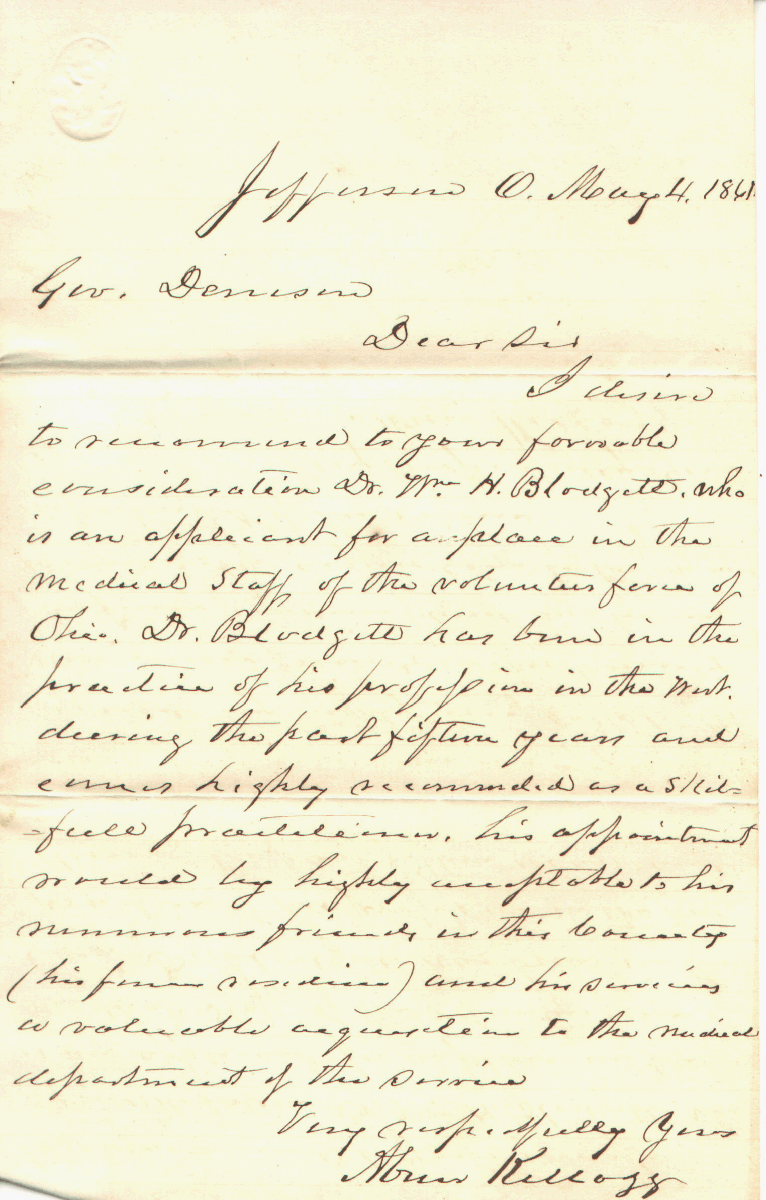 Jefferson O. May 4. 1861.
Gov. Dennison
Dear Sir
I desire
to recommend to your favorable
consideration Dr. Wm H. Blodgett. who
is an applicant for a place in the
Medical Staff of the volunteer force of
Ohio. Dr. Blodgett has been in the
practice of his profession in the West.
during the past fifteen years and
comes highly recommended as a Skil=
=full practitioner. his appointment
would by highly acceptable to his
numerous friends in this County
(his former residence) and his services
a valuable acquisition to the medical
department of the service
Very respectfully Yours
Abner Kellogg